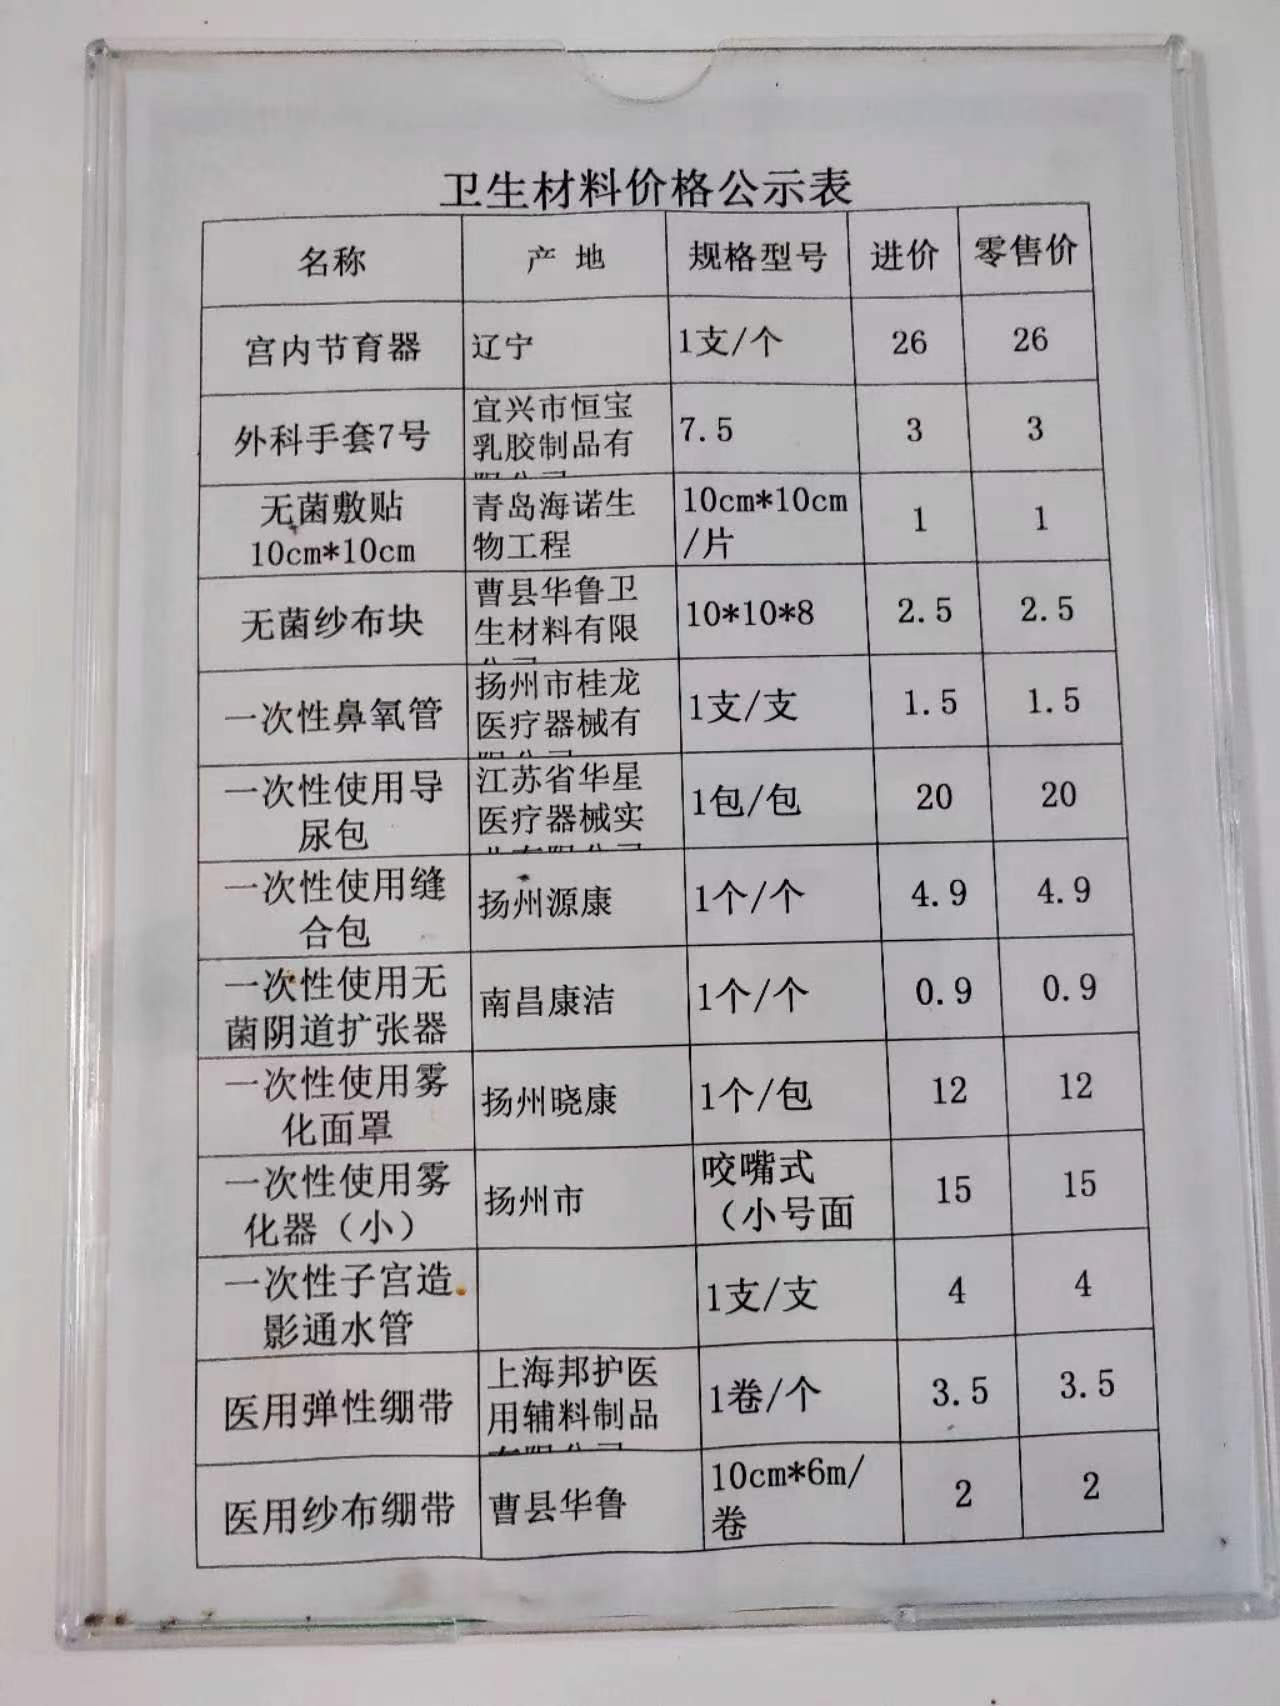 卫生材料价格公示表
名称 产 地 规格型号 进价 零售价
宫内节育器 辽宁 1支/个 26 26
外科手套7号 宜兴市恒宝
乳胶制品有 7.5 3 3
无菌敷贴
10cm*10cm 青岛海诺生
物工程 10cm*10cm
/片 1 1
无菌纱布块 曹县华鲁卫
生材料有限 10*10*8 2.5 2.5
一次性鼻氧管 扬州市桂龙
医疗器械有 1支/支 1.5 1.5
一次性使用导
尿包 江苏省华星
医疗器械实 1包/包 20 20
一次性使用缝
合包 扬州源康 1个/个 4.9 4.9
一次性使用无
菌阴道扩张器 南昌康洁 1个/个 0.9 0.9
一次性使用雾
化面罩 扬州晓康 1个/包 12 12
一次性使用雾
化器（小） 扬州市 咬嘴式
（小号面 15 15
一次性子宫造
影通水管 1支/支 4 4
医用弹性绷带 上海邦护医
用辅料制品 1卷/个 3.5 3.5
医用纱布绷带 曹县华鲁 10cm*6m/
卷 2 2